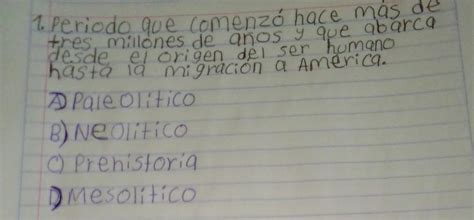 1. Periodo que comenzó hace más de
tres millones de años y que abarca
desde el origen del ser humano
hasta la migración a América.
A) Paleolitico
B) Neolitico
C) Prehistoria
D) Mesolitico